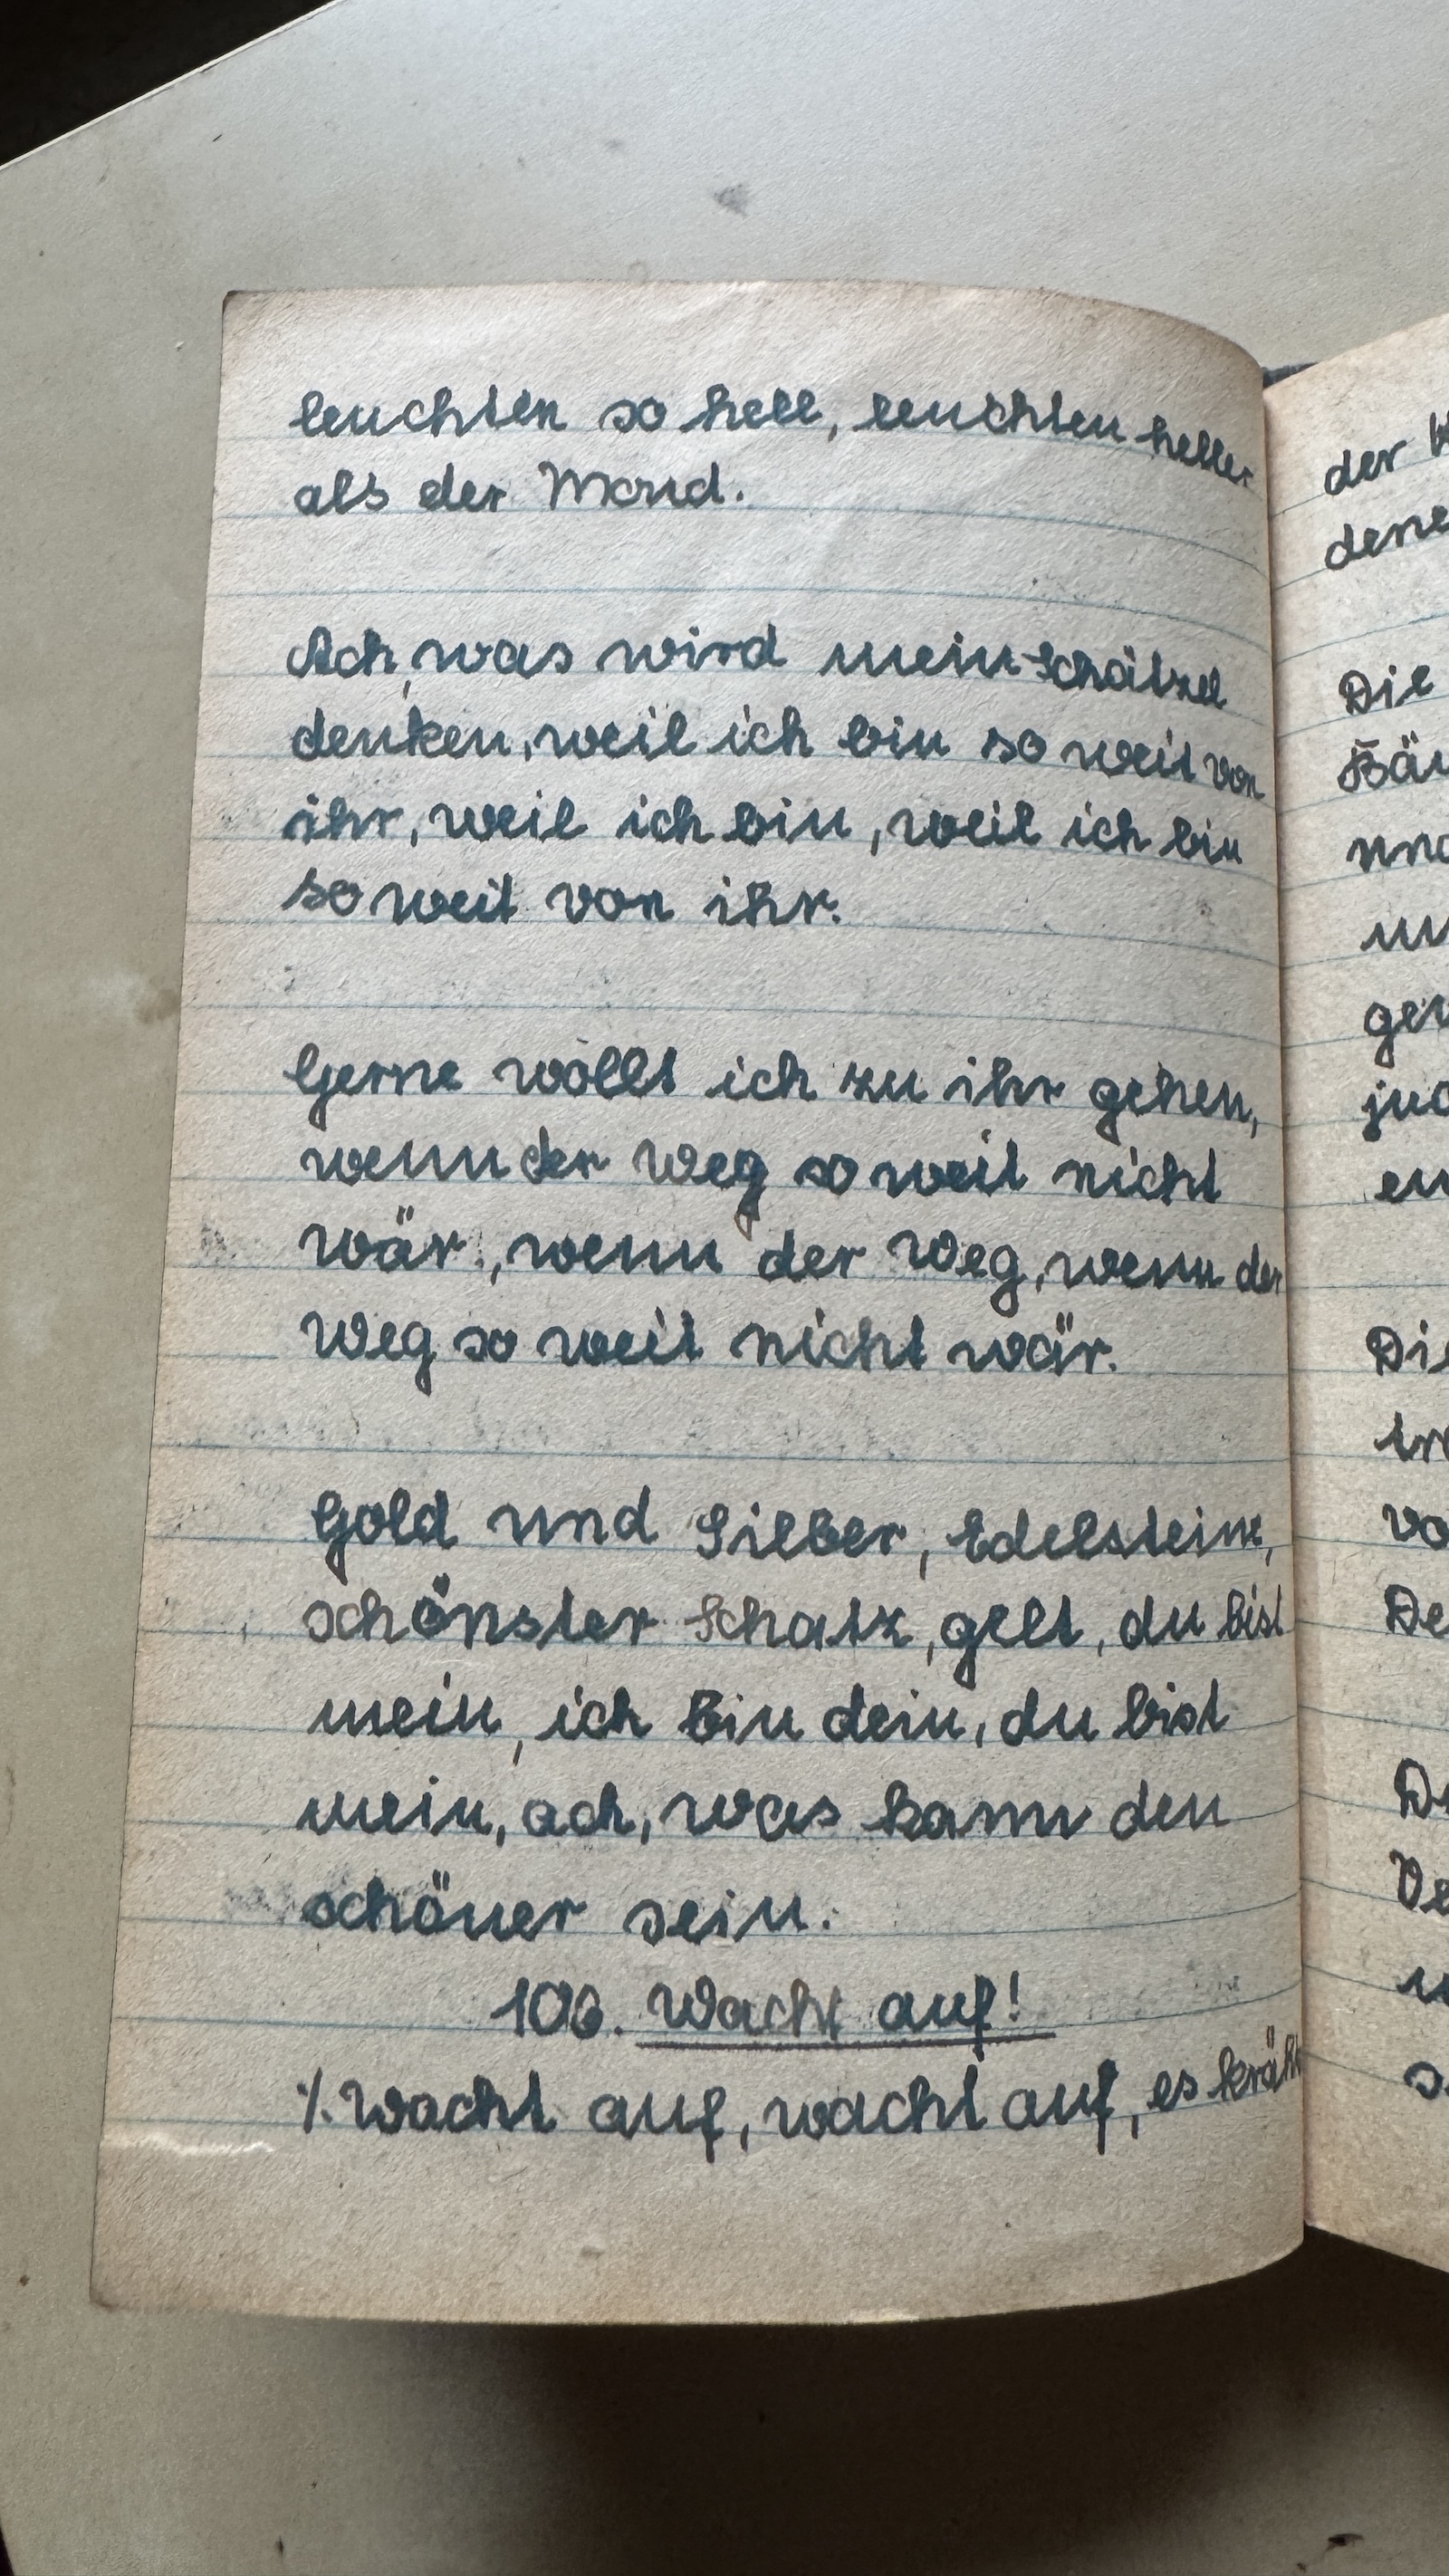 leuchten so hell, leuchten heller
als der Mond.
Ach, was wird mein Schätzel
denken, weil ich bin so weit von
ihr, weil ich bin, weil ich bin
so weit von ihr.
Gerne wollt ich zu ihr gehen,
wenn der Weg so weit nicht
wär, wenn der Weg, wenn der
Weg so weit nicht wär.
Gold und Silber, Edelsteine,
schönster Schatz, gelt, du bist
mein, ich bin dein, du bist
mein, ach, was kann den
schöner sein.
106. Wacht auf!
%. Wacht auf, wacht auf, es kräht
der
Die